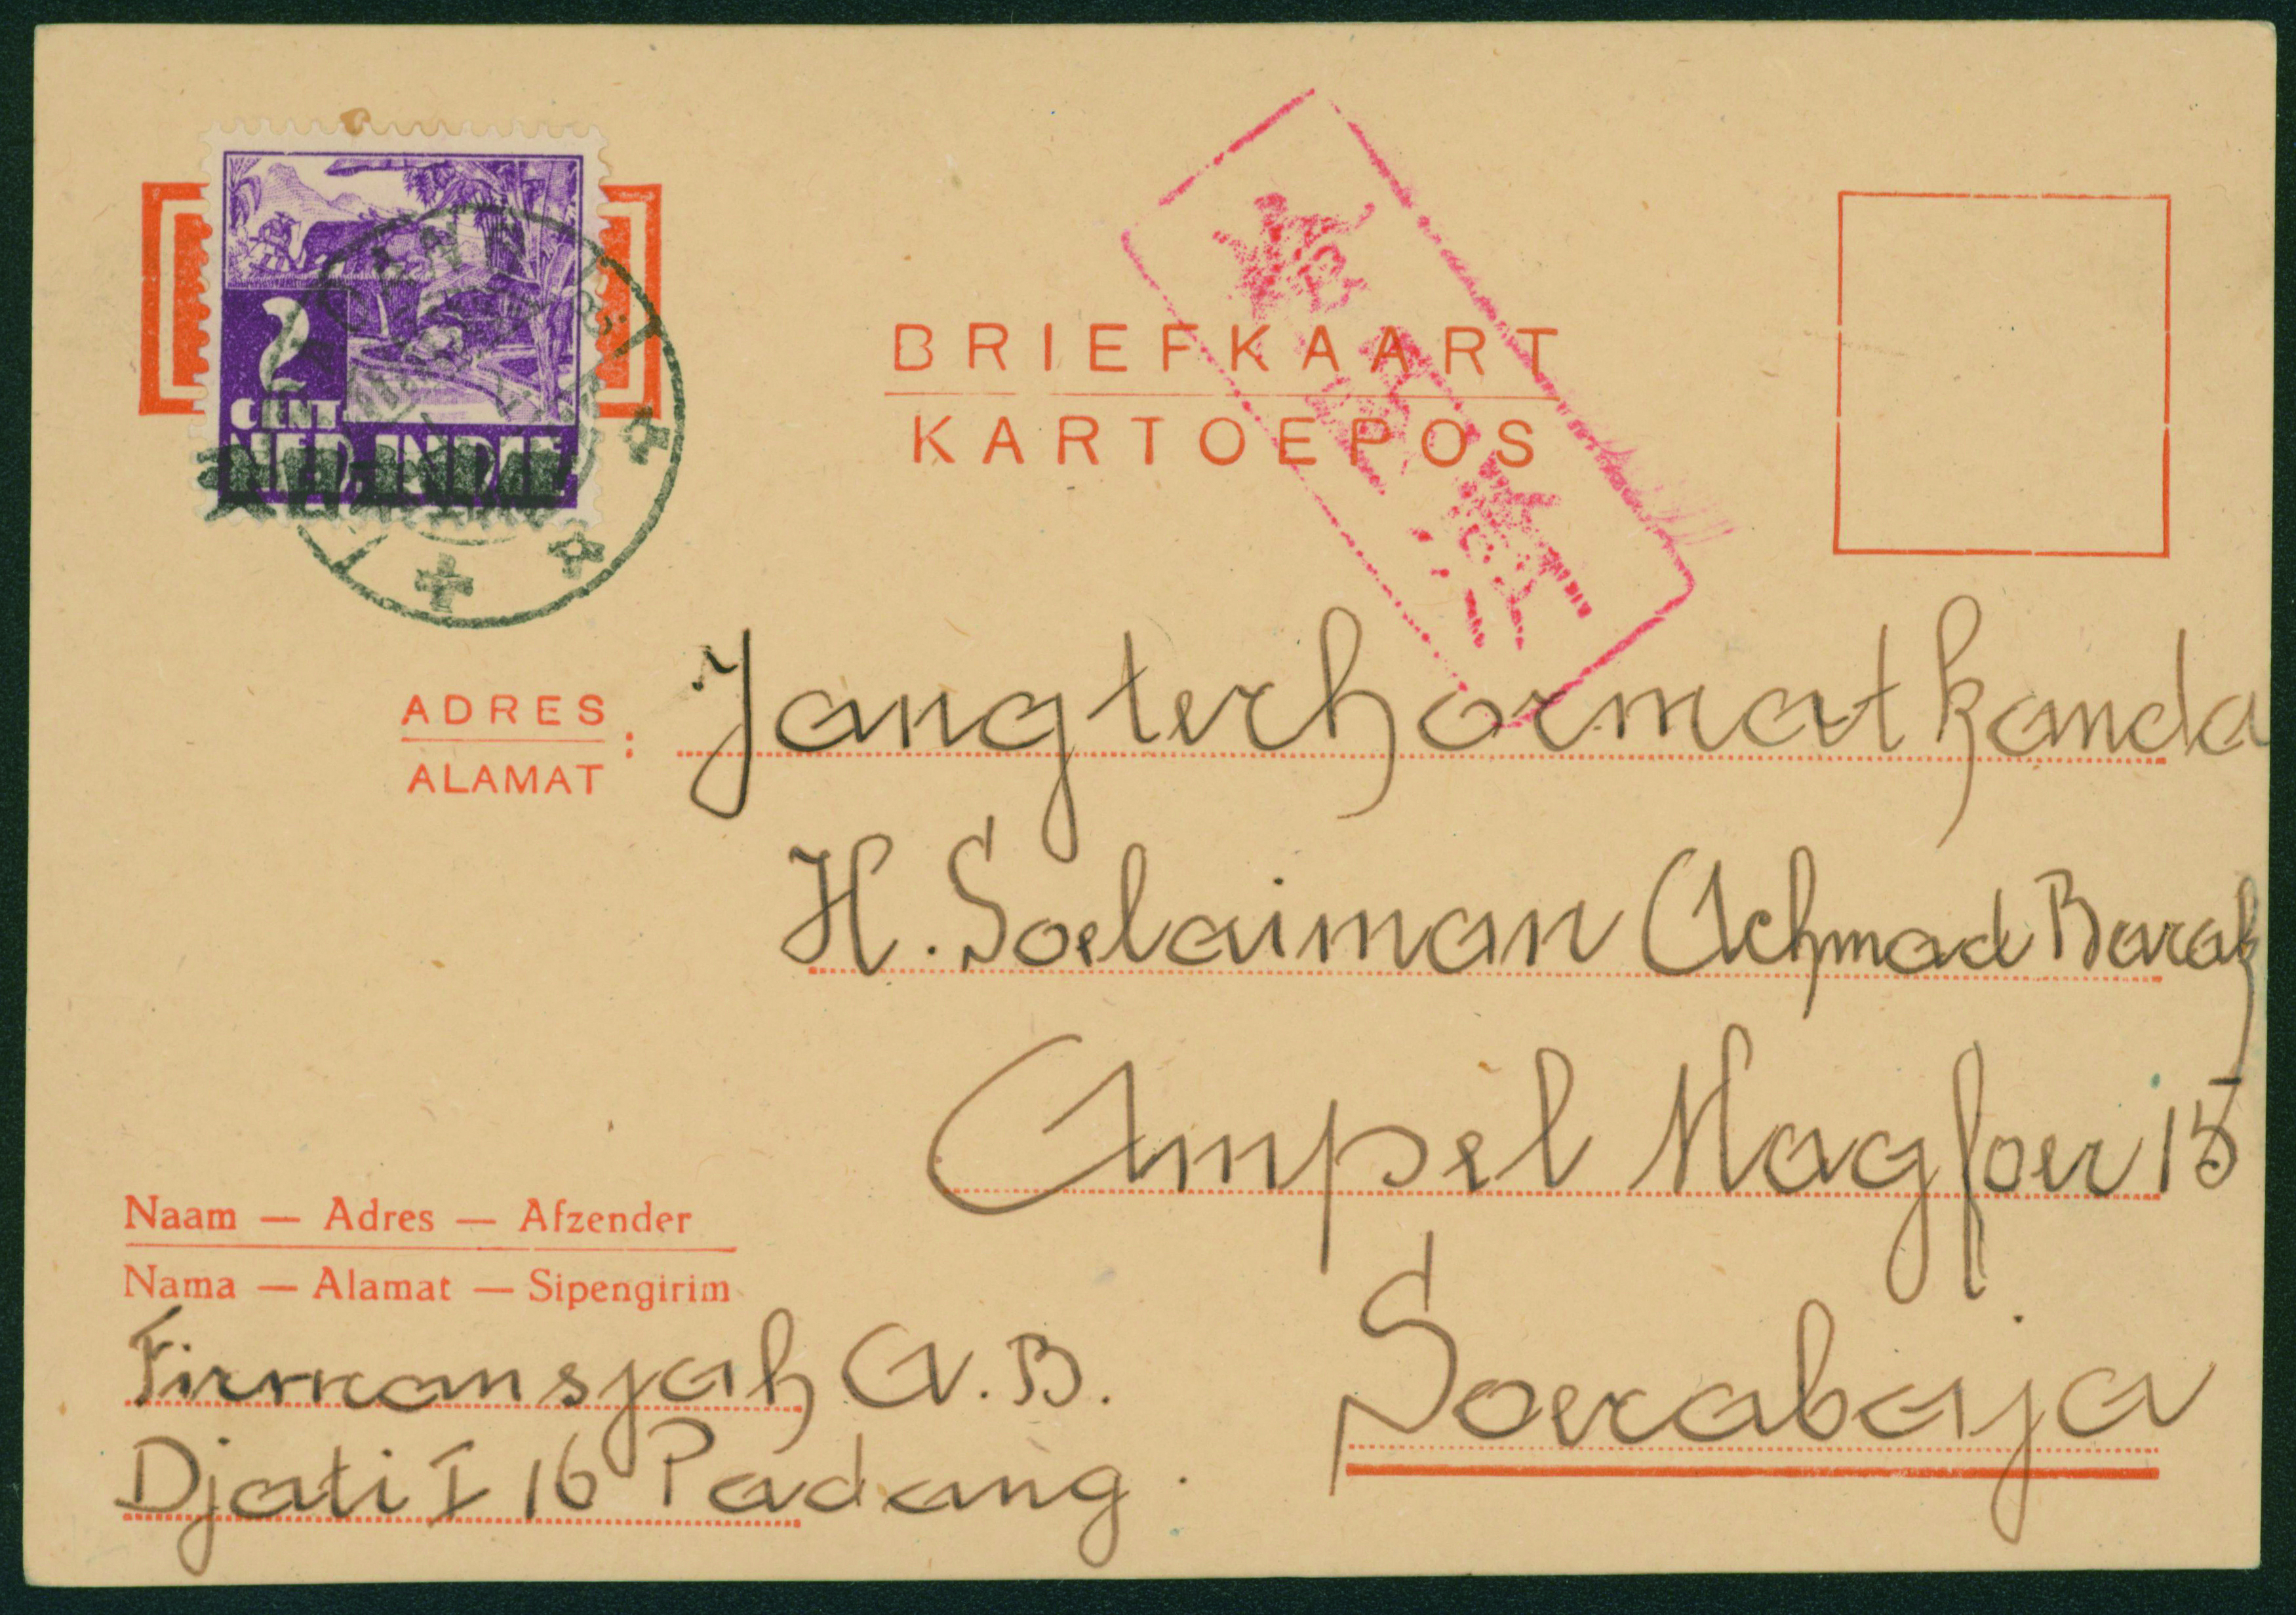 2
CENT
NED. INDIE
BRIEFKAART
KARTOEPOS
ADRES
ALAMAT :
Jangterhormat kanda
H. Soelaiman Achmad
Ampel Magfoer 15
Soerabaja
Naam — Adres — Afzender
Nama — Alamat — Sipengirim
Firmansjah A.B.
Djati I 16 Padang.